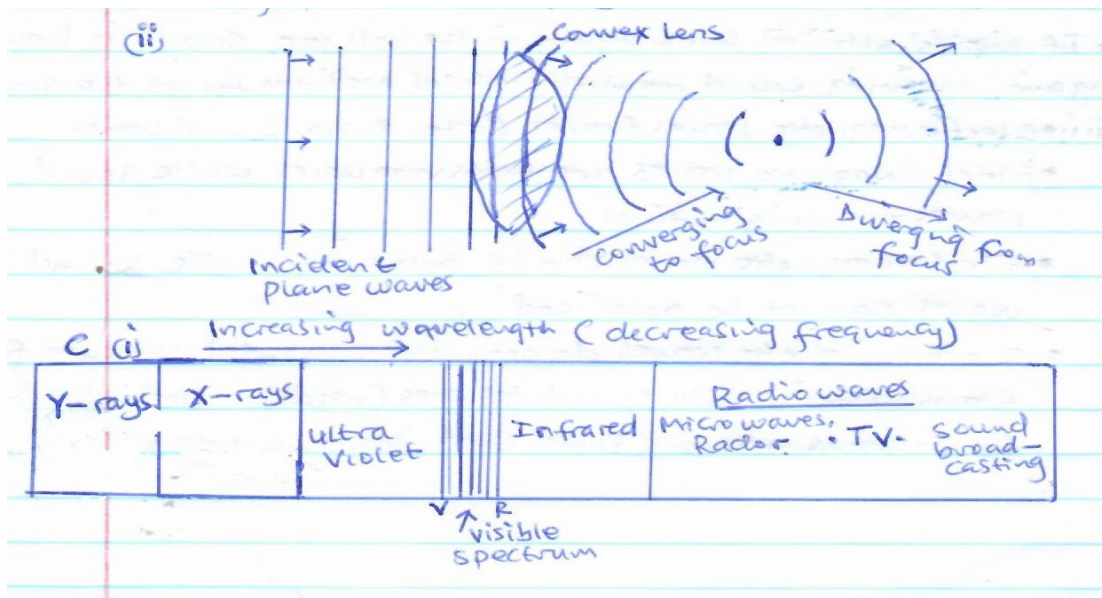 (ii)
Convex Lens
Incident
plane waves
converging
to focus
Diverging from
focus
C (i) Increasing wavelength (decreasing frequency)
γ-rays
X-rays
ultra
Violet
Infrared
Radiowaves
Microwaves,
Radar. . TV.
sound
broad-
casting
V
R
visible
spectrum